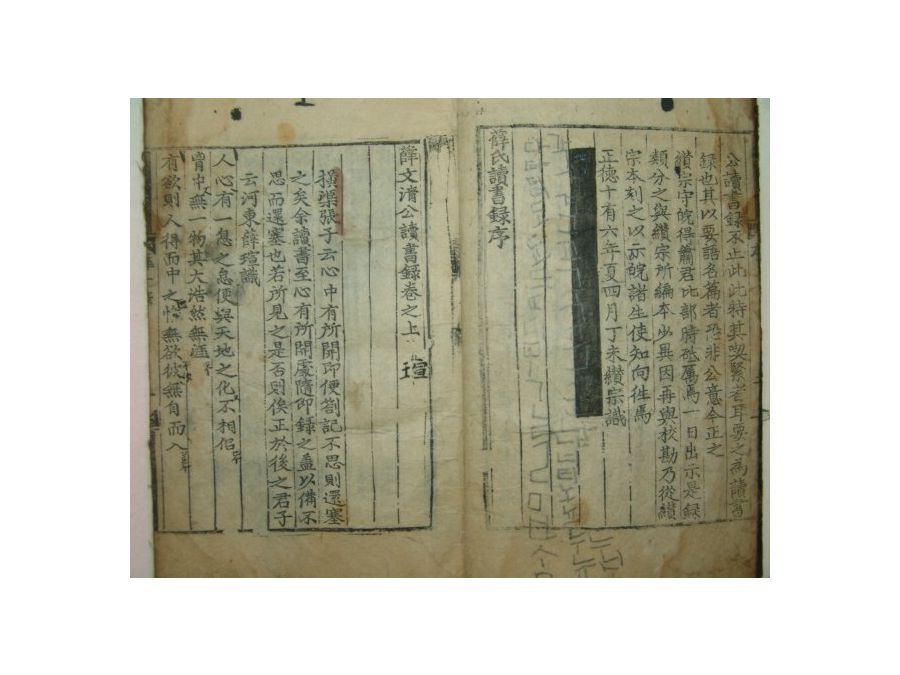 公讀書錄不止此此特其喫緊者耳要之為讀書
錄也其以要語名篇者恐非公意今正之
纘宗守皖得蕭君比部時砥厲焉一日出示是錄
類分之與纘宗所編本少異因再與挍勘乃從纘
宗本刻之以示皖諸生使知向徃焉
正德十有六年夏四月丁未纘宗識
薛氏讀書錄序
薛文淸公讀書錄卷之上
瑄
橫渠張子云心中有所開即便劄記不思則還塞
之矣余讀書至心有所開處隨即錄之盖以備不
思而還塞也若所見之是否則俟正於後之君子
云河東薛瑄識
人心有一息之怠便與天地之化不相侣
胷中無一物其大浩然無涯
有欲則人得而中之惟無欲彼無自而入